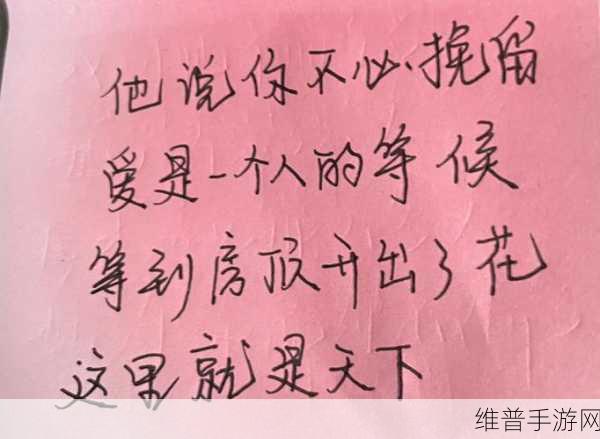 他说你不必挽留
爱是一个人的等候
等到房顶开出了花
这里就是天下
维普手游网